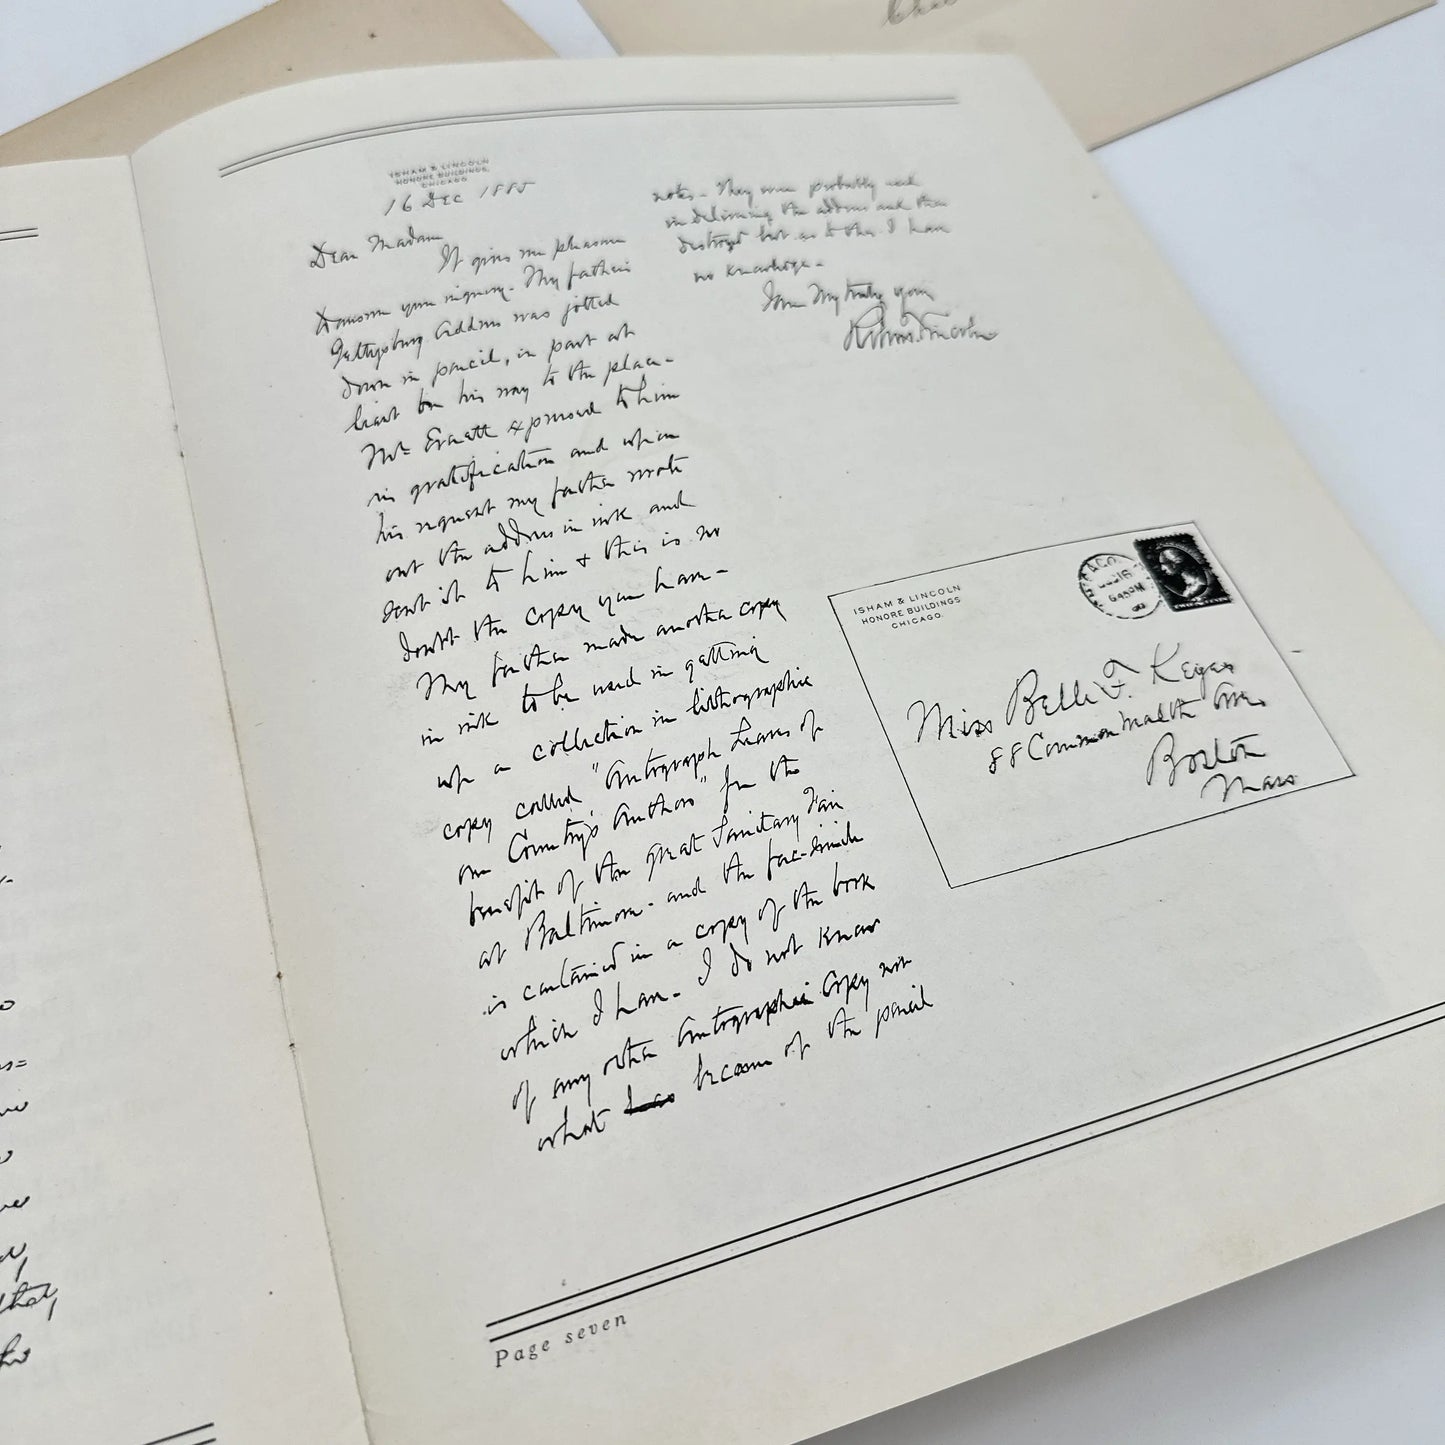 ISHAM & LINCOLN
HONORE BUILDINGS,
CHICAGO
16 Dec 1885
Dear Madam
It gives me pleasure
to answer your inquiry. My father's
Gettysburg Address was jotted
down in pencil, in part at
least on his way to the place.
Mr. Everett expressed to him
his gratification and upon
his request my father wrote
out the address in ink and
sent it to him & this is no
doubt the copy you have.
My father made another copy
in ink to be used in getting
up a collection in lithographic
copy called "Autograph Leaves of
our Country's Authors" for the
benefit of the great Sanitary Fair
at Baltimore - and the fac-simile
is contained in a copy of the book
which I have. I do not know
of any other autographic copy nor
what has become of the pencil
notes. They were probably used
in delivering the address and then
destroyed but as to this I have
no knowledge.
I am very truly yours
Robert T. Lincoln
ISHAM & LINCOLN
HONORE BUILDINGS
CHICAGO.
Miss Belle F. Keyes
88 Commonwealth Ave.
Boston
Mass
Page seven
that,